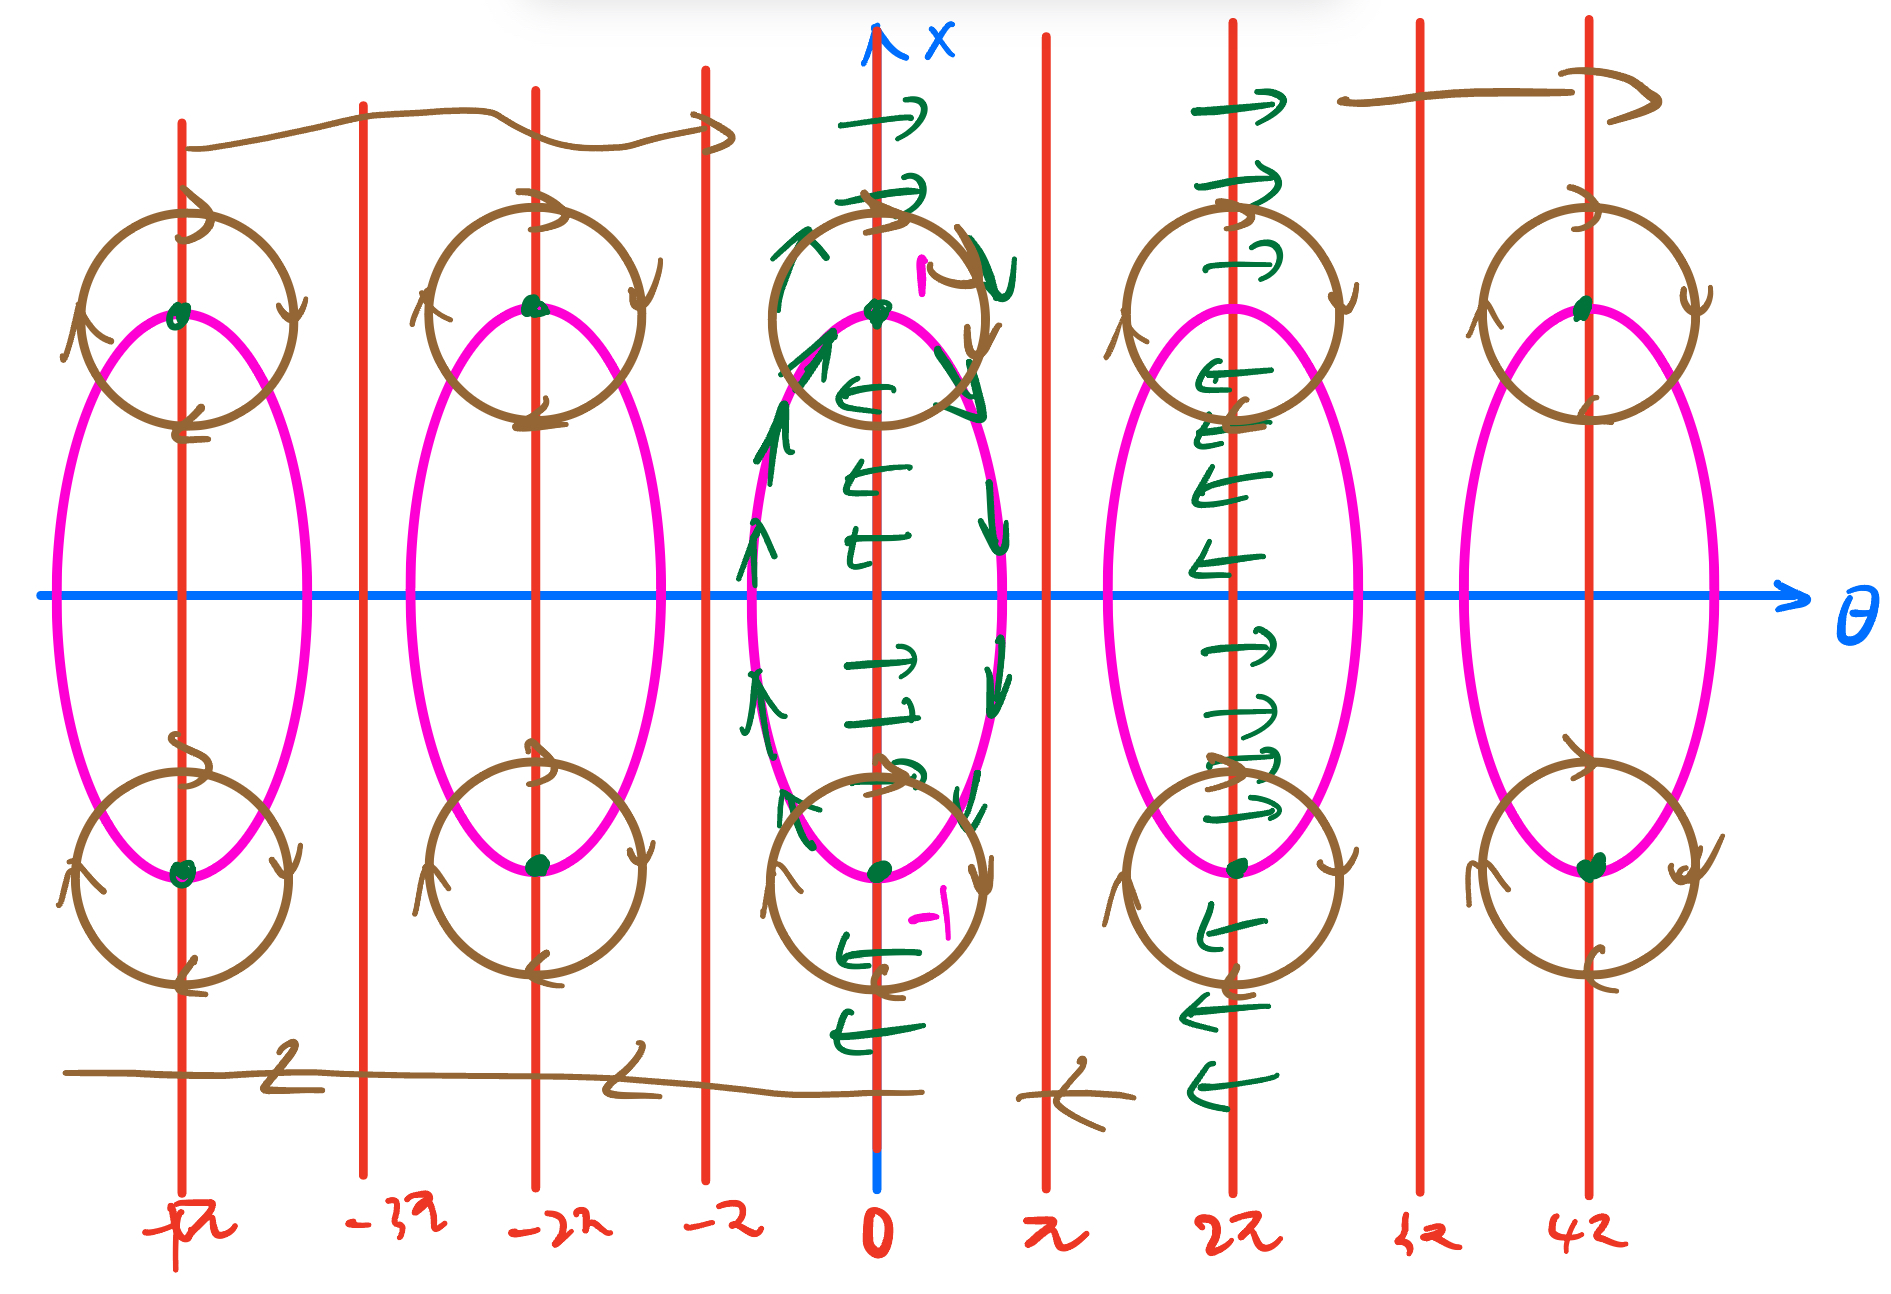 x
1
θ
-1
-4π -3π -2π -π 0 π 2π 3π 4π